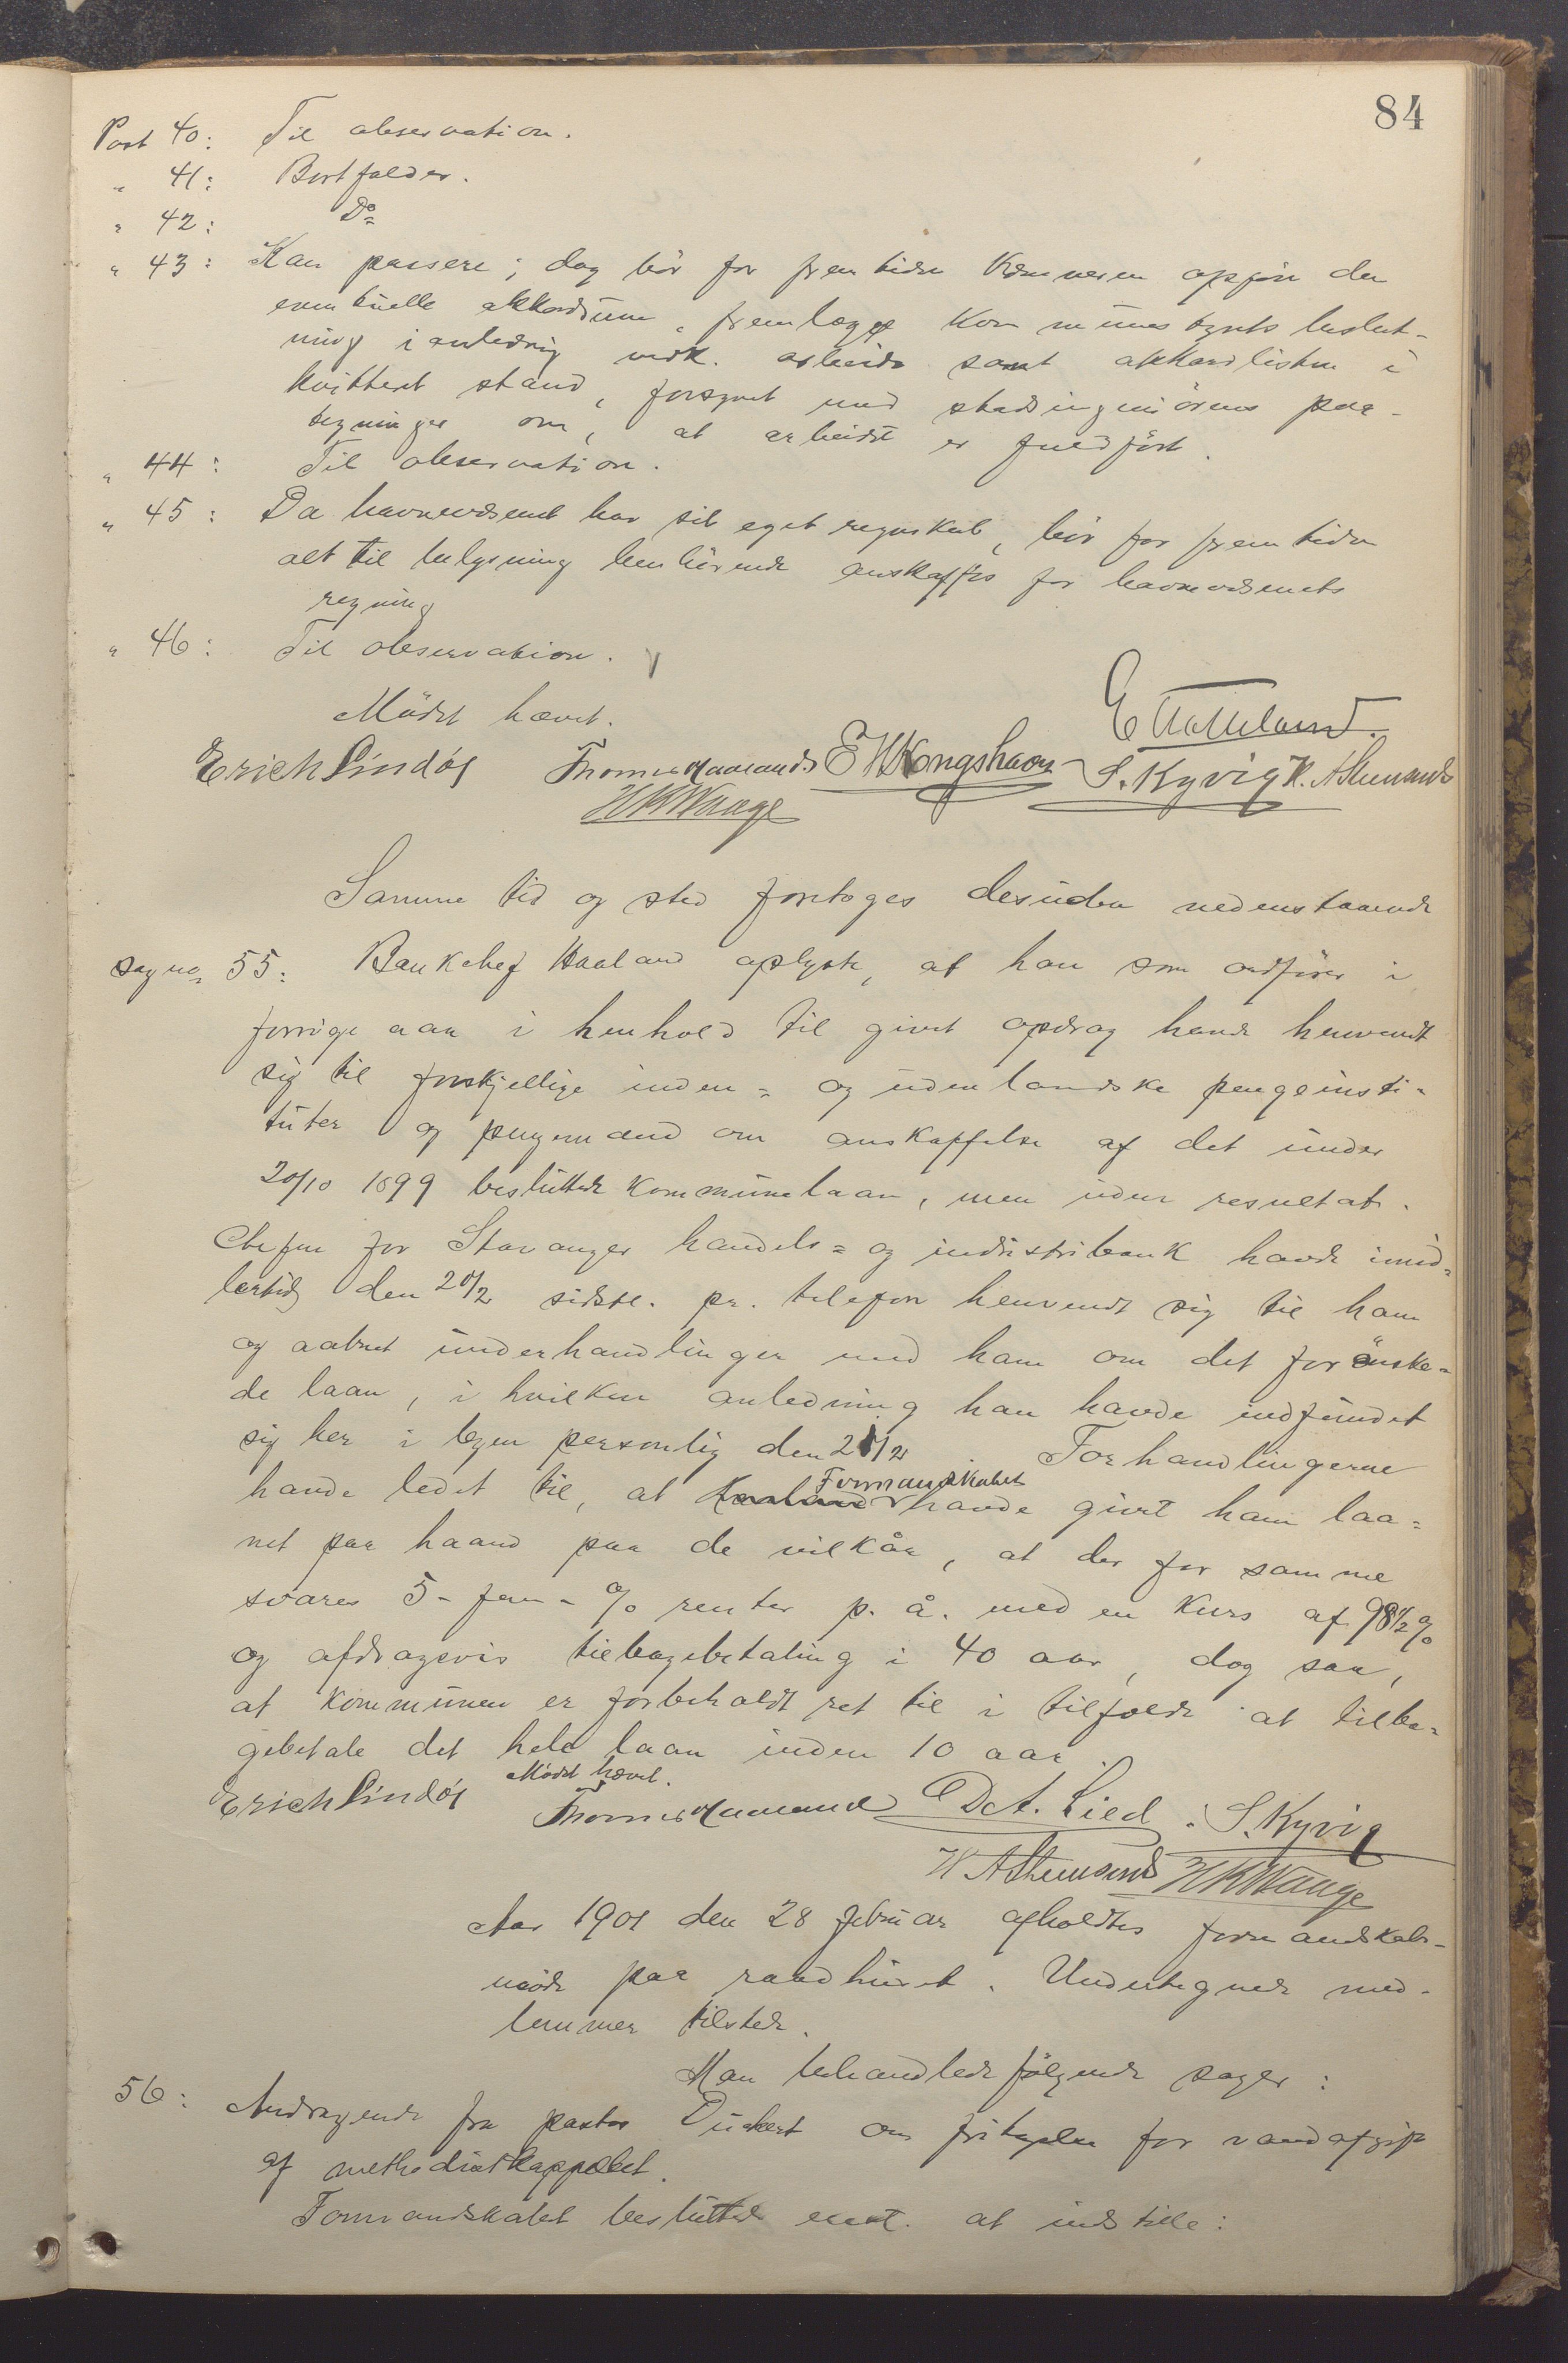 84
Post 40: Til observation.
" 41: Bortfalder.
" 42: Do
" 43: Kan passere; dog bör for fremtiden kæmneren opgjöre den
eventuelle akkordsum, fremlægge kommunestyrets beslut-
ning i anledning vedk. arbeide samt akkordlisten i
kvitteret stand, forsynet med stadsingeniörens paa-
tegninger om, at arbeidet er fuldfört.
" 44: Til observation.
" 45: Da havnevæsenet har sit eget regnskab, bör for fremtiden
alt til belysning henhörende anskaffes for havnevæsenets
regning
" 46: Til observation.
Mödet hævet.
E Hatteland.
Erich Lindöe Thomas Haaland E W Kongshavn S. Kyvig K. A Stensrud
H K Waage
Samme tid og sted foretoges desuden nedenstaaende
sag no 55: Bankchef Haaland oplyste, at han som ordförer i
forrige aar i henhold til givet opdrag havde henvendt
sig til forskjellige inden= og udenlandske pengeinsti-
tuter og pengemænd om anskaffelse af det under
20/10 1899 besluttede kommunelaan, men uden resultat.
Chefen for Stavanger handels= og industribank havde imid=
lertid den 20/2 sidstl. pr. telefon henvendt sig til ham
og aabnet underhandlinger med ham om det forönske=
de laan, i hvilken anledning han havde indfundet
sig her i byen personlig den 21/2. Forhandlingerne
havde ledet til, at Formandskabet havde givet ham laa=
net paa haand paa de vilkår, at der for samme
svares 5 - fem - % renter p. å. med en kurs af 98 1/2 %
og afdragsvis tilbagebetaling i 40 aar, dog saa,
at kommunen er forbeholdt ret til i tilfælde at tilba=
gebetale det hele laan inden 10 aar.
Mödet hævet.
Erich Lindöe Thomas Haaland D et A. Lied. S. Kyvig
K A Stensrud H K Waage
Aar 1901 den 28 februar afholdtes formandskabs-
möde paa raadhuset. Undertegnede med-
lemmer tilstede.
Man behandlede fölgende sager:
56: Andragende fra pastor Duckert om fritagelse for vandafgift
af methodistkappellet.
Formandskabet besluttede enst. at indstille: